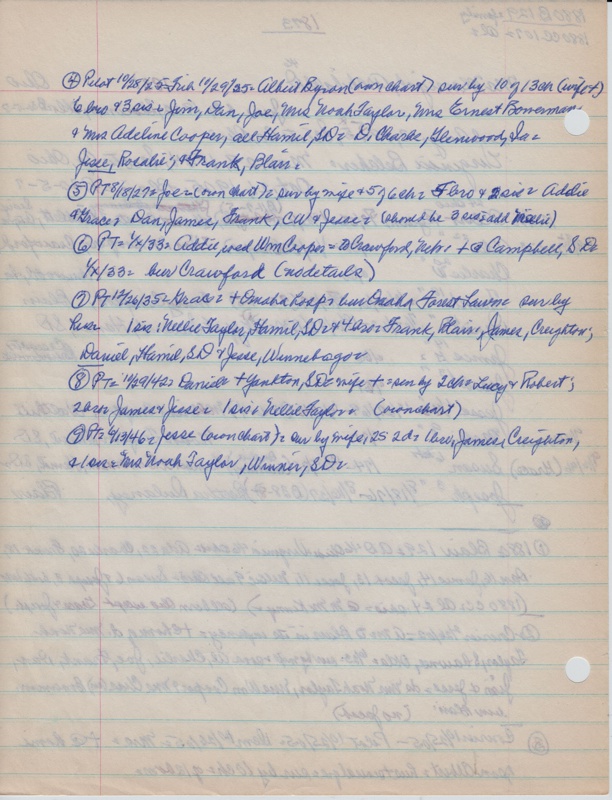 1893
④ Pilot 10/28/25 = Feb 10/29/35 = Albert Byron (own chart) sur by 10 of 13 ch (wife +)
6 bro & 3 sis = Jim, Dan, Joe, Mrs Noah Taylor, Mrs Ernest Bowerman
& Mrs Adeline Cooper, all Hamil, SD = D. Charles, Glenwood, Ia =
Jesse, Rosalie, & Frank, Blair =
⑤ PT 8/18/27 = Joe = (own chart) = sur by wife & 5 of 6 ch = 5 bro & 2 sis = Addie
& Grace = Dan, James, Frank, CW & Jesse = (should be 3 sis add Nellie)
⑥ PT = 1/4/33 = Addie, wed Wm Cooper = to Crawford, Nebr + @ Campbell, SD =
1/4/33 = bur Crawford (no details)
⑦ PT 12/26/35 = Grace = + Omaha hosp = bur Omaha Forest Lawn sur by
hus = 1 sis = Nellie Taylor, Hamil, SD = & 4 bro = Frank, Blair, James, Creighton;
Daniel, Hamil, SD & Jesse, Winnebago =
⑧ PT = 12/29/42 = Daniel = + Yankton, SD = wife + = sur by 2 ch = Lucy & Robert;
2 bro = James & Jesse = 1 sis = Nellie Taylor = (own chart)
⑨ Pt = 4/13/46 = Jesse (own chart) = sur by wife, 2S 2d = 1 bro, James, Creighton,
& 1 sis = Mrs Noah Taylor, Winner, SD =